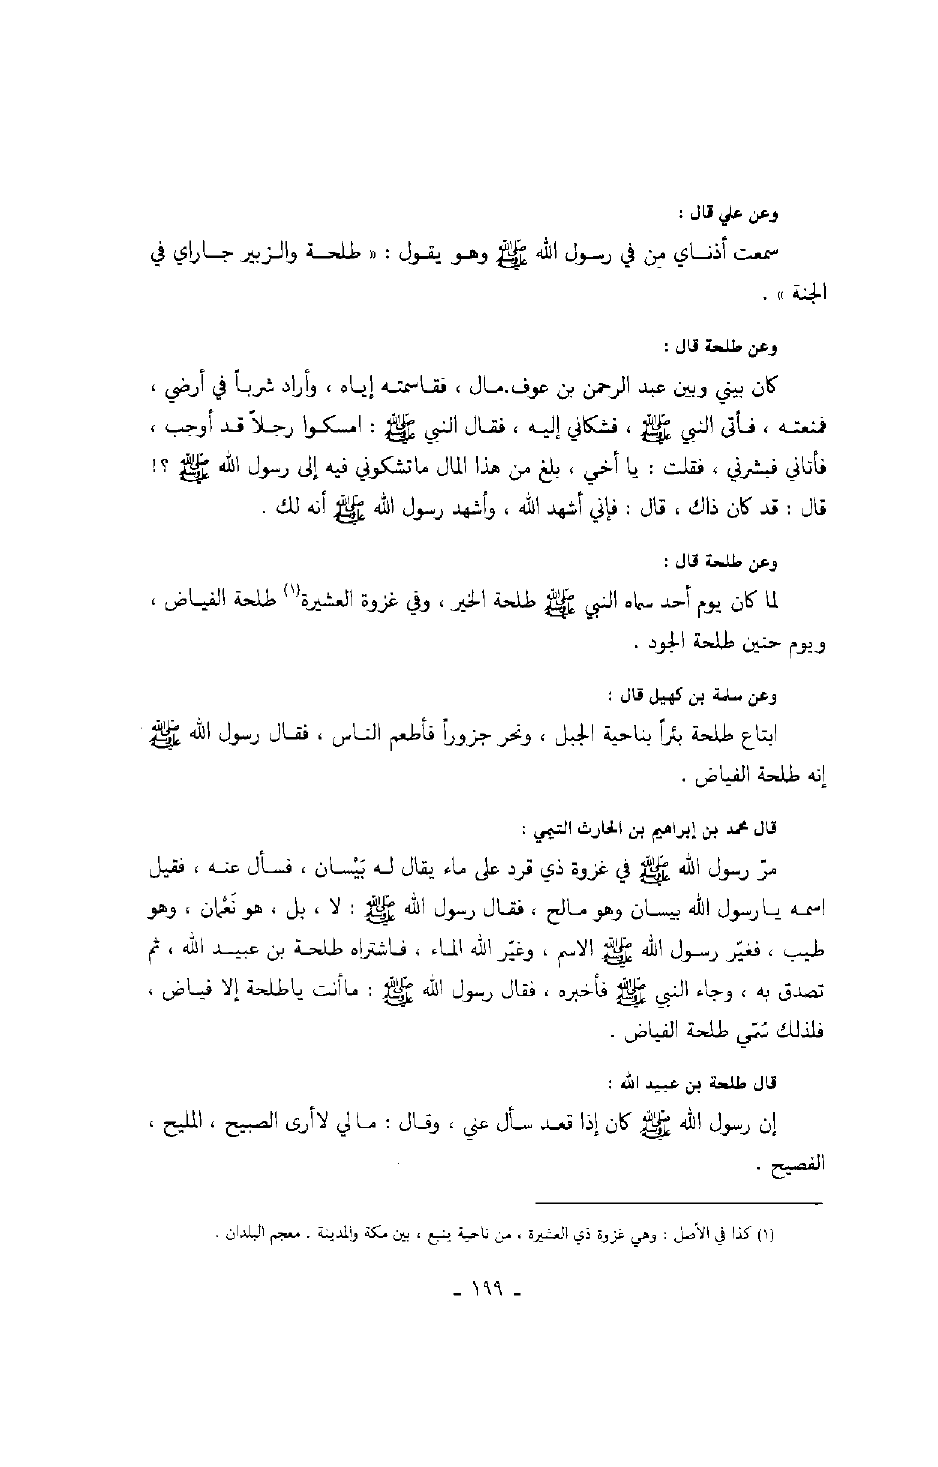 وعن علي قال :
سمعت أذنـاي من في رسـول الله ﷺ وهـو يقـول : « طلحـة والـزبير جـاراي في
الجنة » .
وعن طلحة قال :
كان بيني وبين عبد الرحمن بن عوف.مـال ، فقـاسمتـه إيـاه ، وأراد شربـاً في أرضي ،
فمنعتـه ، فـأتى النبي ﷺ ، فشكاني إليـه ، فقـال النبي ﷺ : امسكـوا رجـلاً قـد أوجب ،
فأتاني فبشرني ، فقلت : يا أخي ، بلغ من هذا المال ماتشكوني فيه إلى رسول الله ﷺ ؟!
قال : قد كان ذاك ، قال : فإني أشهد الله ، وأشهد رسول الله ﷺ أنه لك .
وعن طلحة قال :
لما كان يوم أحد سماه النبي ﷺ طلحة الخير ، وفي غزوة العشيرة(١) طلحة الفيـاض ،
ويوم حنين طلحة الجود .
وعن سلمة بن كهيل قال :
ابتاع طلحة بئراً بناحية الجبل ، ونحر جزوراً فأطعم النـاس ، فقـال رسول الله ﷺ
إنه طلحة الفياض .
قال محمد بن إبراهيم بن الحارث التيمي :
مرّ رسول الله ﷺ في غزوة ذي قرد على ماء يقال لـه بَيْسـان ، فسـأل عنـه ، فقيل
اسمـه يـارسول الله بيسـان وهو مـالح ، فقـال رسول الله ﷺ : لا ، بل ، هو نَعْمان ، وهو
طيب ، فغيّر رسـول الله ﷺ الاسم ، وغيّر الله المـاء ، فـاشتراه طلحـة بن عبيـد الله ، ثم
تصدق به ، وجاء النبي ﷺ فأخبره ، فقال رسول الله ﷺ : ماأنت ياطلحة إلا فيـاض ،
فلذلك سُمّي طلحة الفياض .
قال طلحة بن عبيد الله :
إن رسول الله ﷺ كان إذا قعـد سـأل عني ، وقـال : مـالي لاأرى الصبيح ، المليح ،
الفصيح .
(١) كذا في الأصل : وهي غزوة ذي العشيرة ، من ناحية ينبع ، بين مكة والمدينة . معجم البلدان .
- ١٩٩ -